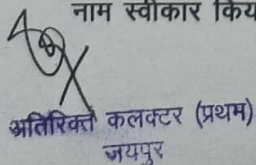 नाम स्वीकार किय
अतिरिक्त कलक्टर (प्रथम)
जयपुर